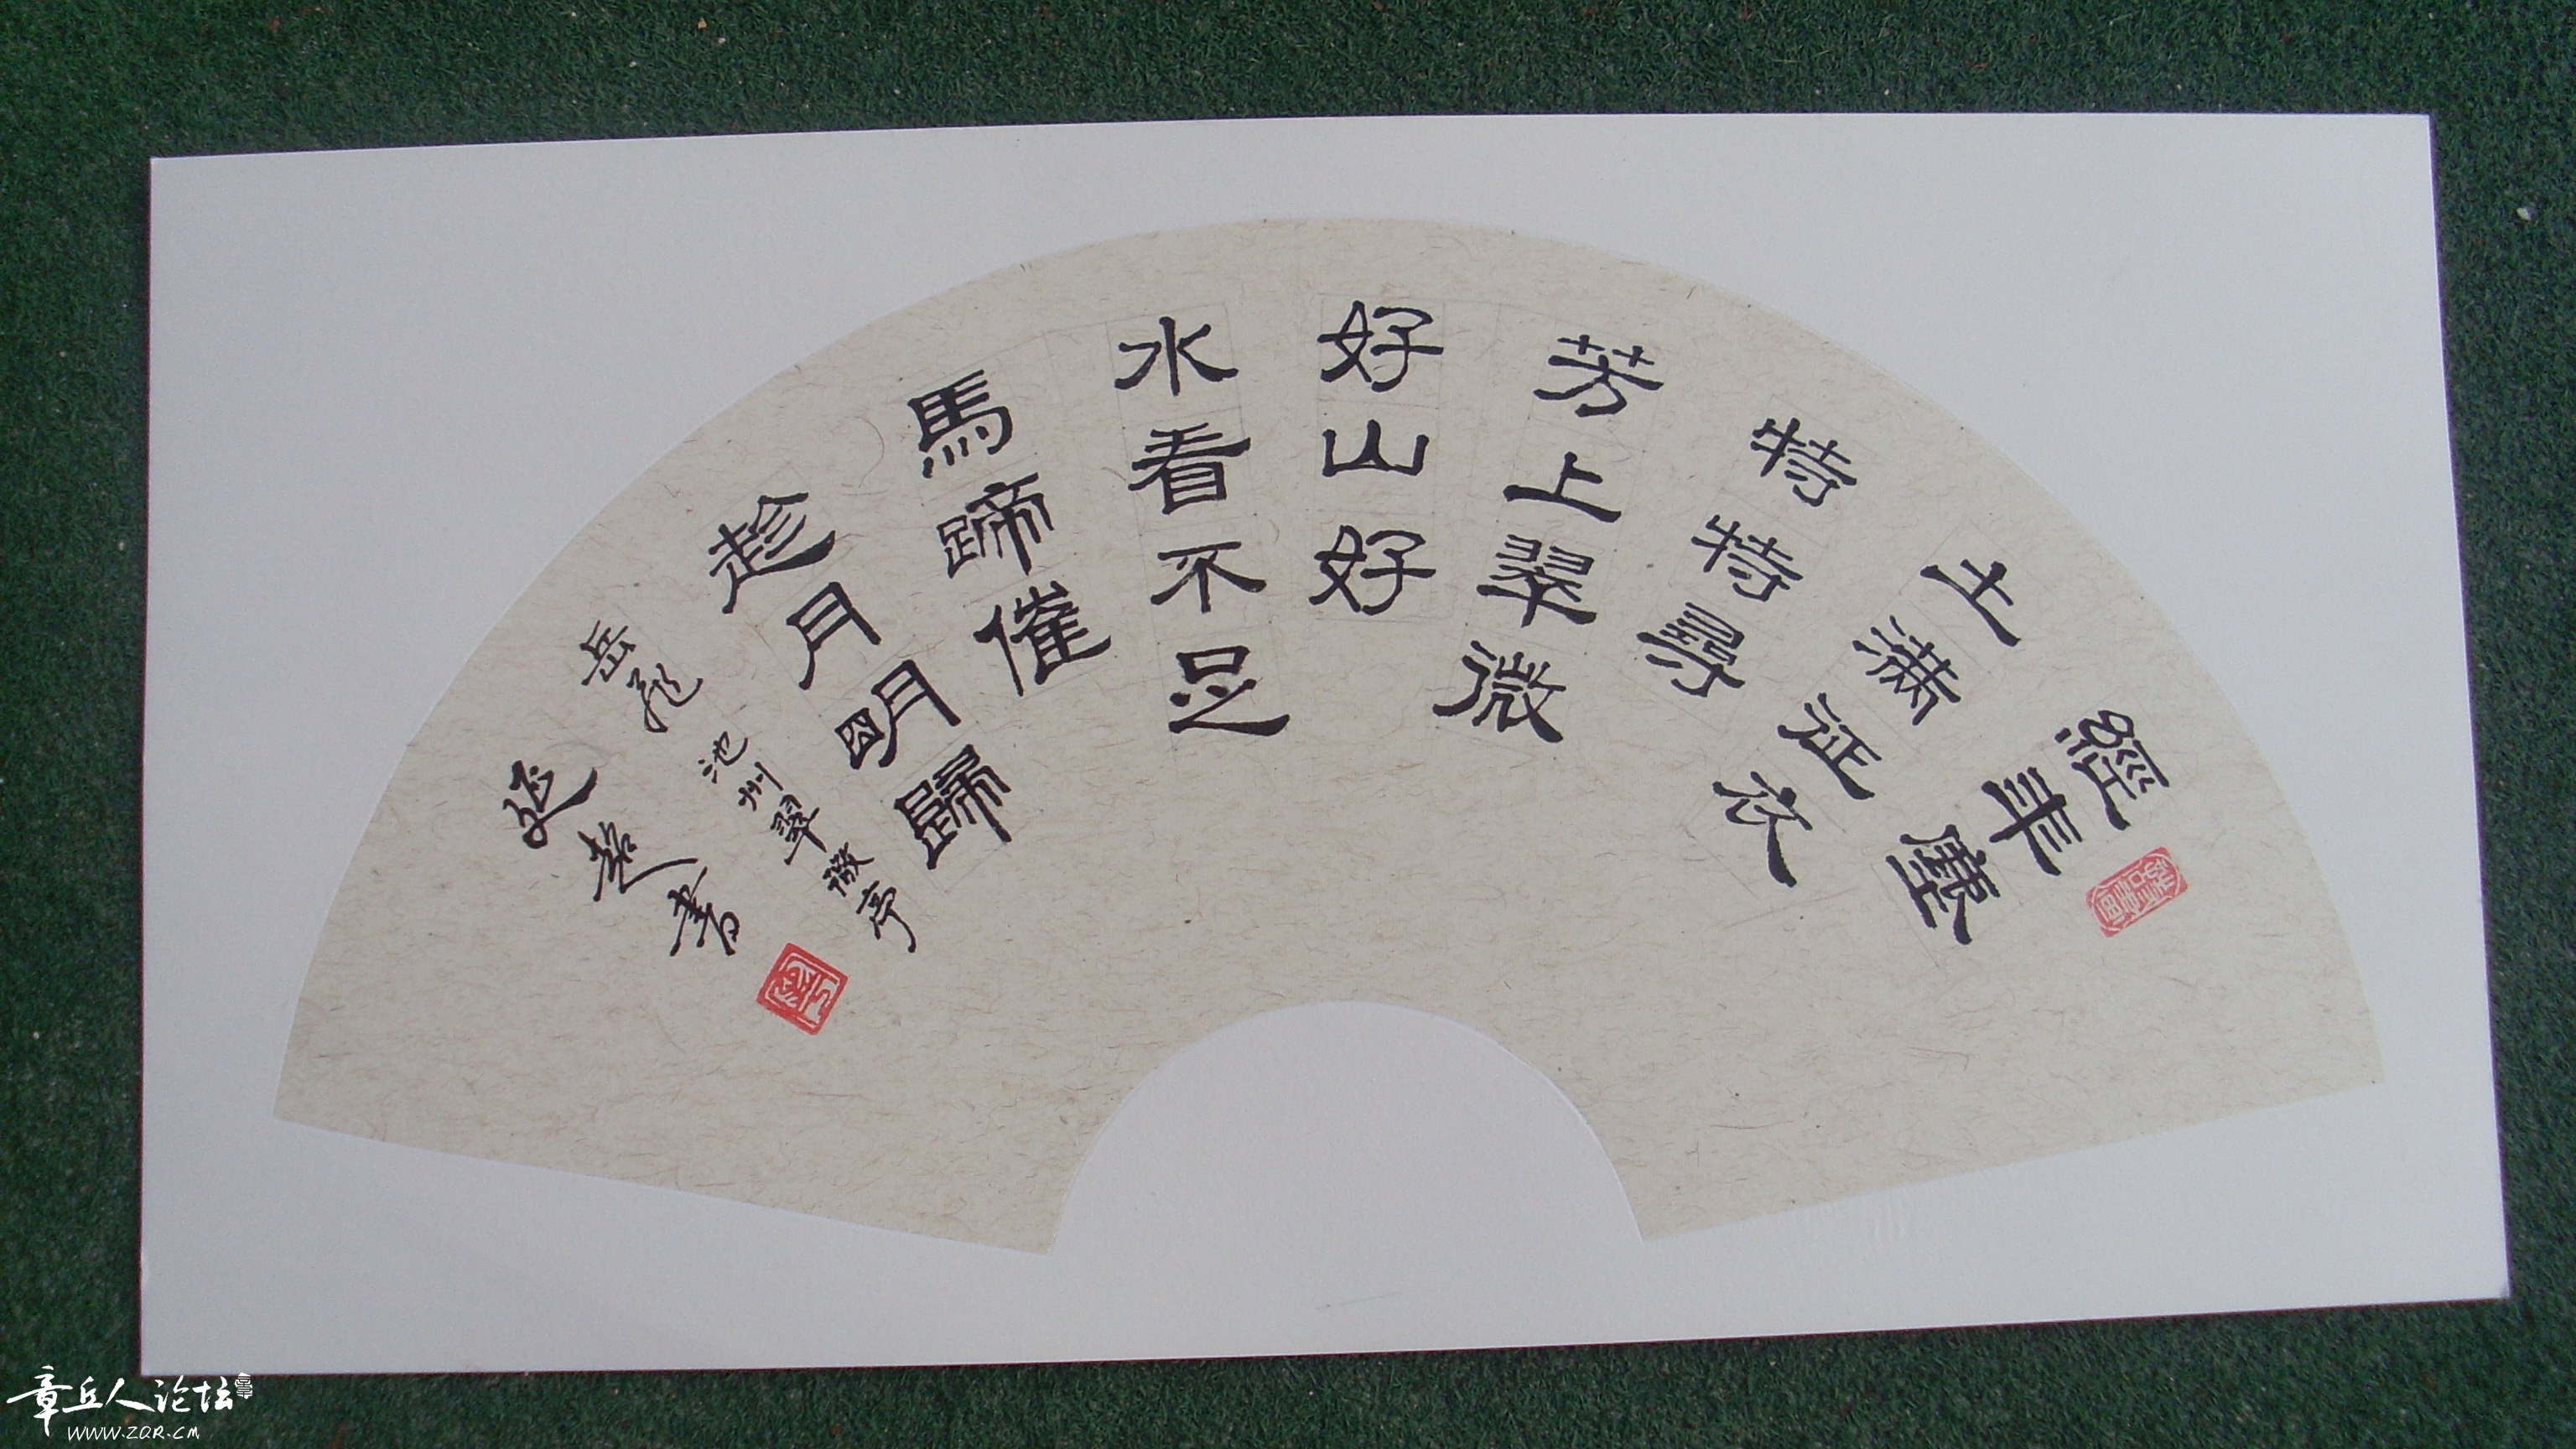 經年塵
土满征衣
特特尋
芳上翠微
好山好
水看不足
馬蹄催
趁月明歸
岳飛池州翠微亭
書
章丘人论坛
www.zqr.cm